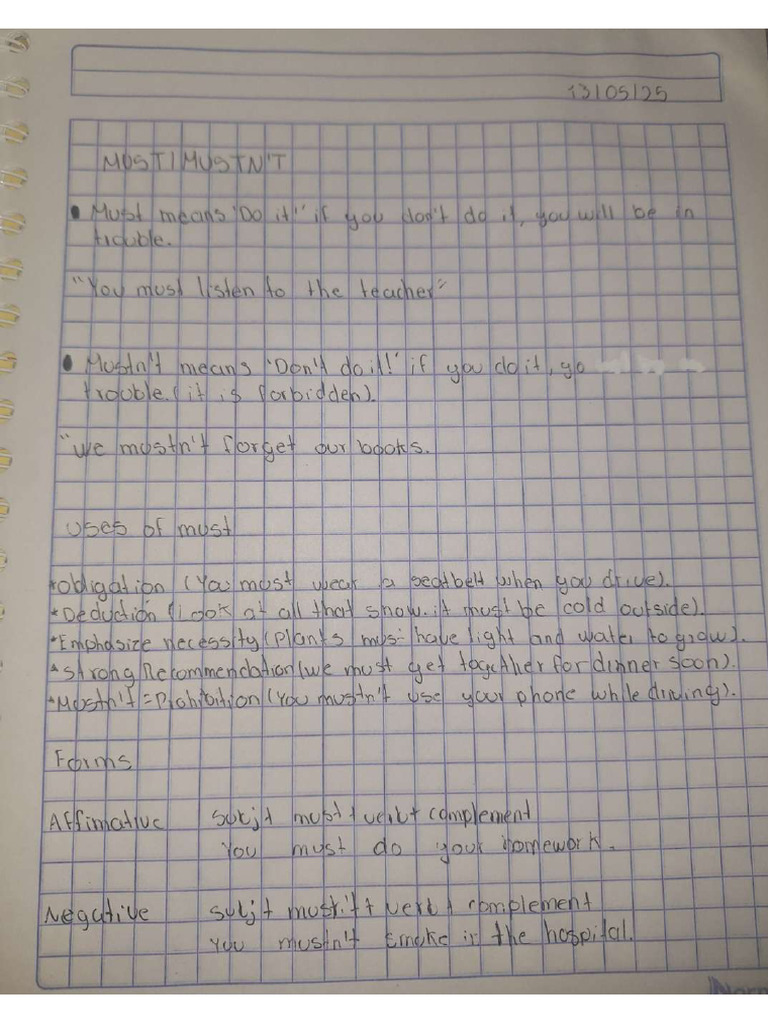 13/05/25
MUST/MUSTN'T
• Must means 'Do it!' if you don't do it, you will be in
trouble.
"You must listen to the teacher"
• Mustn't means 'Don't do it!' if you do it, go
trouble. (it is forbidden).
"we mustn't forget our books.
Uses of must
*Obligation (You must wear a seatbelt when you drive).
*Deduction (Look at all that snow. it must be cold outside).
*Emphasize necessity (Plants mus have light and water to grow).
*Strong Recommendation (we must get together for dinner soon).
*Mustn't = Prohibition (You mustn't use your phone while driving).
Forms
Affimative subj+ must + verb + complement
You must do your homework.
Negative subj+ mustn't + verb + complement
You mustn't smoke in the hospital.
Norm